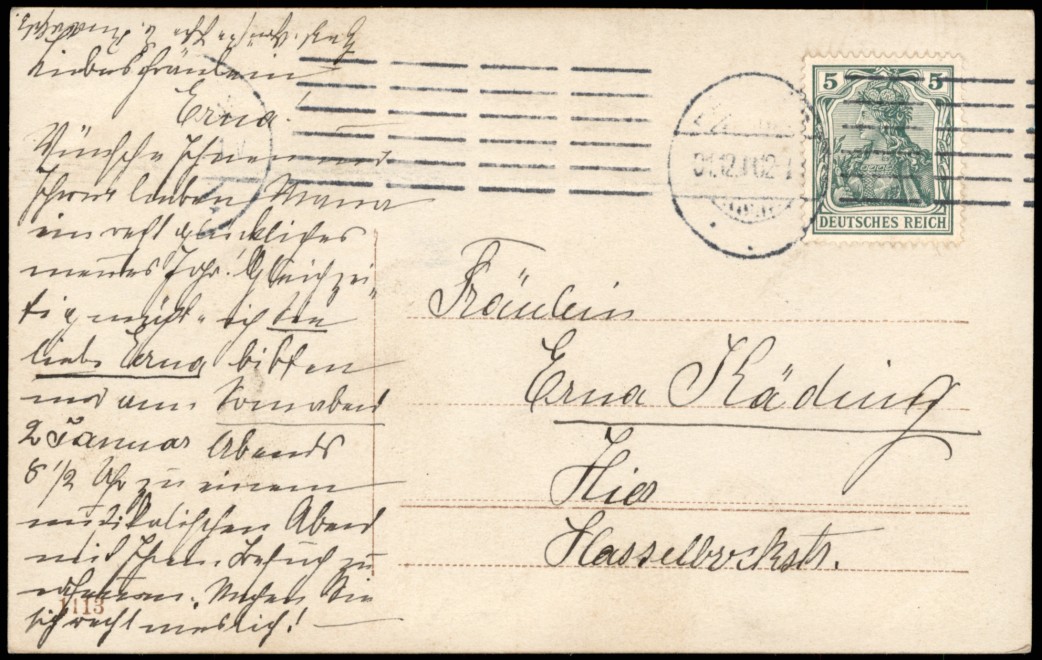 Liebes Fräulein
Erna!
Wünsche Ihnen und
Ihrer lieben Mama
ein recht glückliches
neues Jahr! Gleichzei-
tig möchte ich Sie
liebe Erna bitten
uns am Sonnabend
2 Januar Abends
8 1/2 Uhr zu einem
musikalischen Abend
mit Ihrem Besuch zu
erfreuen. Machen Sie
sich recht niedlich!
1113
5 5
DEUTSCHES REICH
31.12. 12-1
Fräulein
Erna Käding
Hier
Hasselbrockstr.